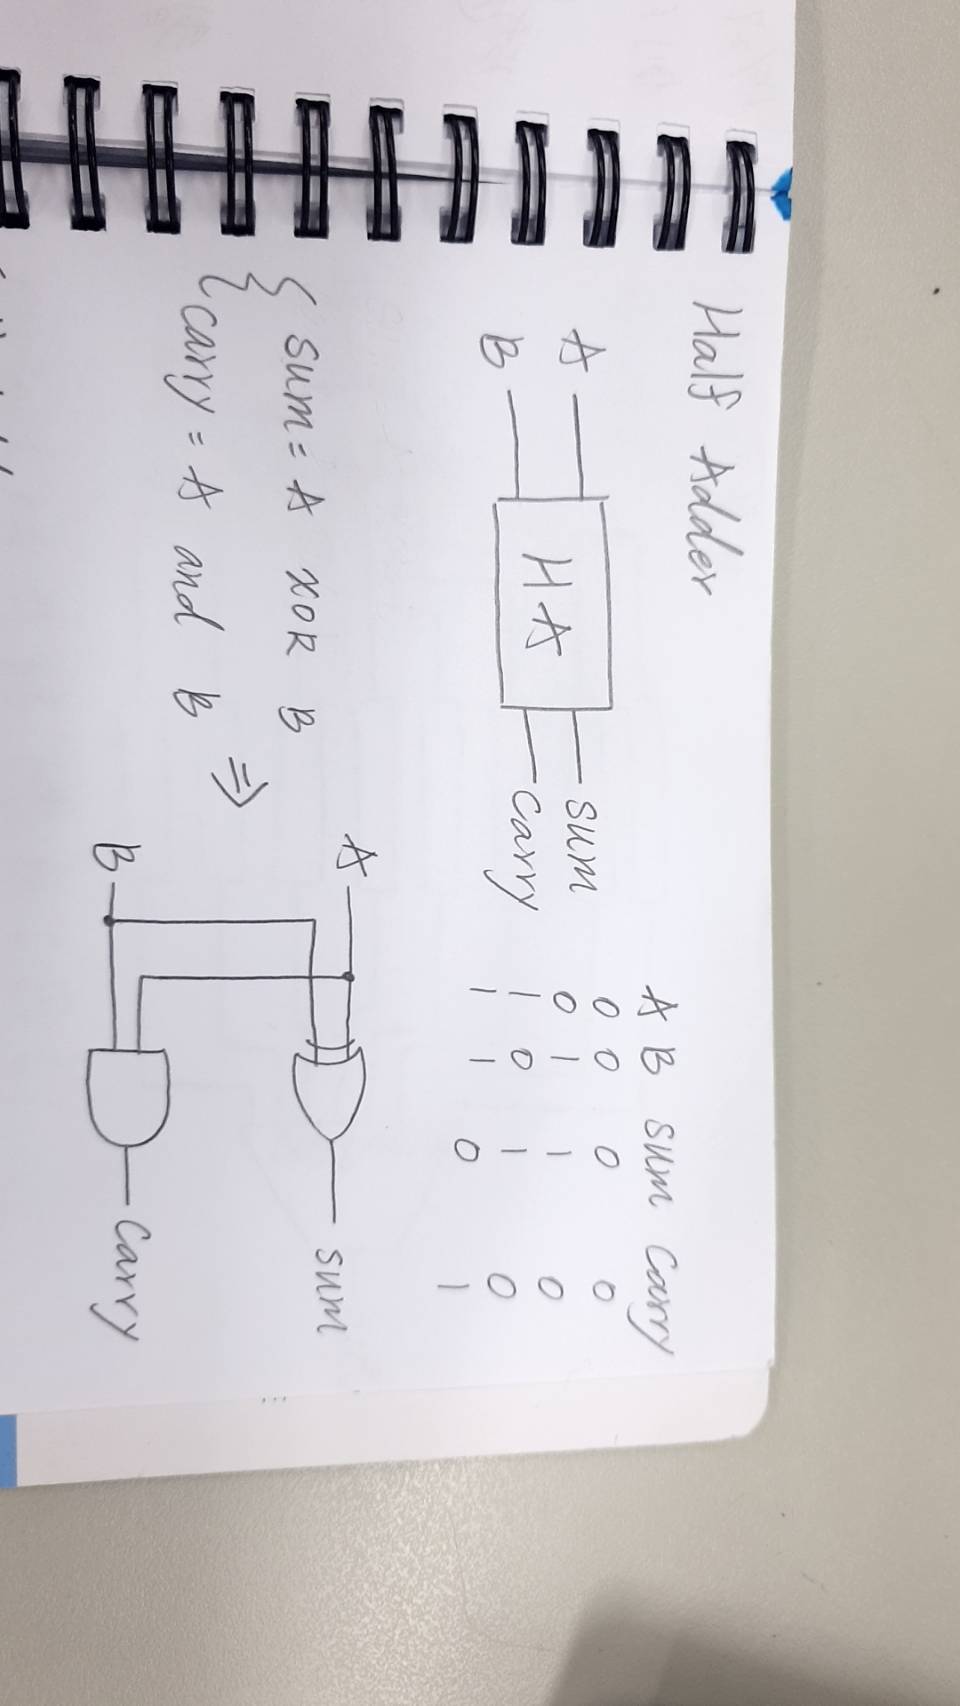 Half Adder
A
B
HA
sum
carry
A B sum carry
0 0 0 0
0 1 1 0
1 0 1 0
1 1 0 1
sum = A XOR B
carry = A and B
⇒
A
B
sum
carry